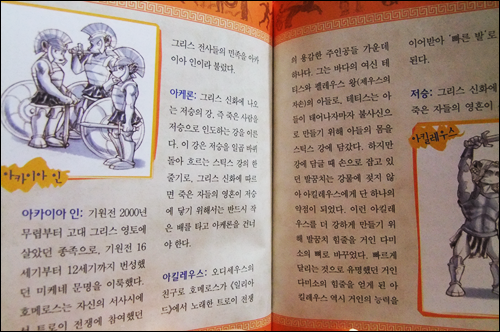 아카이아 인
아카이아 인: 기원전 2000년
무렵부터 고대 그리스 영토에
살았던 종족으로, 기원전 16
세기부터 12세기까지 번성했
던 미케네 문명을 이룩했다.
호메로스는 자신의 서사시에
서 트로이 전쟁에 참여했던
그리스 전사들의 민족을 아카
이아 인이라 불렀다.
아케론: 그리스 신화에 나오
는 저승의 강, 즉 죽은 사람을
저승으로 인도하는 강을 이른
다. 이 강은 저승을 일곱 바퀴
돌아 흐르는 스틱스 강의 한
줄기로, 그리스 신화에 따르
면 죽은 자들의 영혼이 저승
에 닿기 위해서는 반드시 작
은 배를 타고 아케론을 건너
야 한다.
아킬레우스: 오디세우스의
친구로 호메로스가 《일리아
드》에서 노래한 트로이 전쟁
의 용감한 주인공들 가운데
하나다. 그는 바다의 여신 테
티스와 펠레우스 왕(제우스의
자손)의 아들로, 테티스는 아
들이 태어나자마자 불사신으
로 만들기 위해 아들의 몸을
스틱스 강에 담갔다. 하지만
강에 담글 때 손으로 잡고 있
던 발꿈치는 강물에 젖지 않
아 아킬레우스에게 단 하나의
약점이 되었다. 이런 아킬레우
스를 더 강하게 만들기 위
해 발꿈치 힘줄을 거인 다미
소의 뼈로 바꾸었다. 빠르게
달리는 것으로 유명했던 거인
다미소의 힘줄을 얻게 된 아
킬레우스 역시 거인의 능력을
이어받아 '빠른 발'로
된다.
저승: 그리스 신화에
죽은 자들의 영혼이
아킬레우스